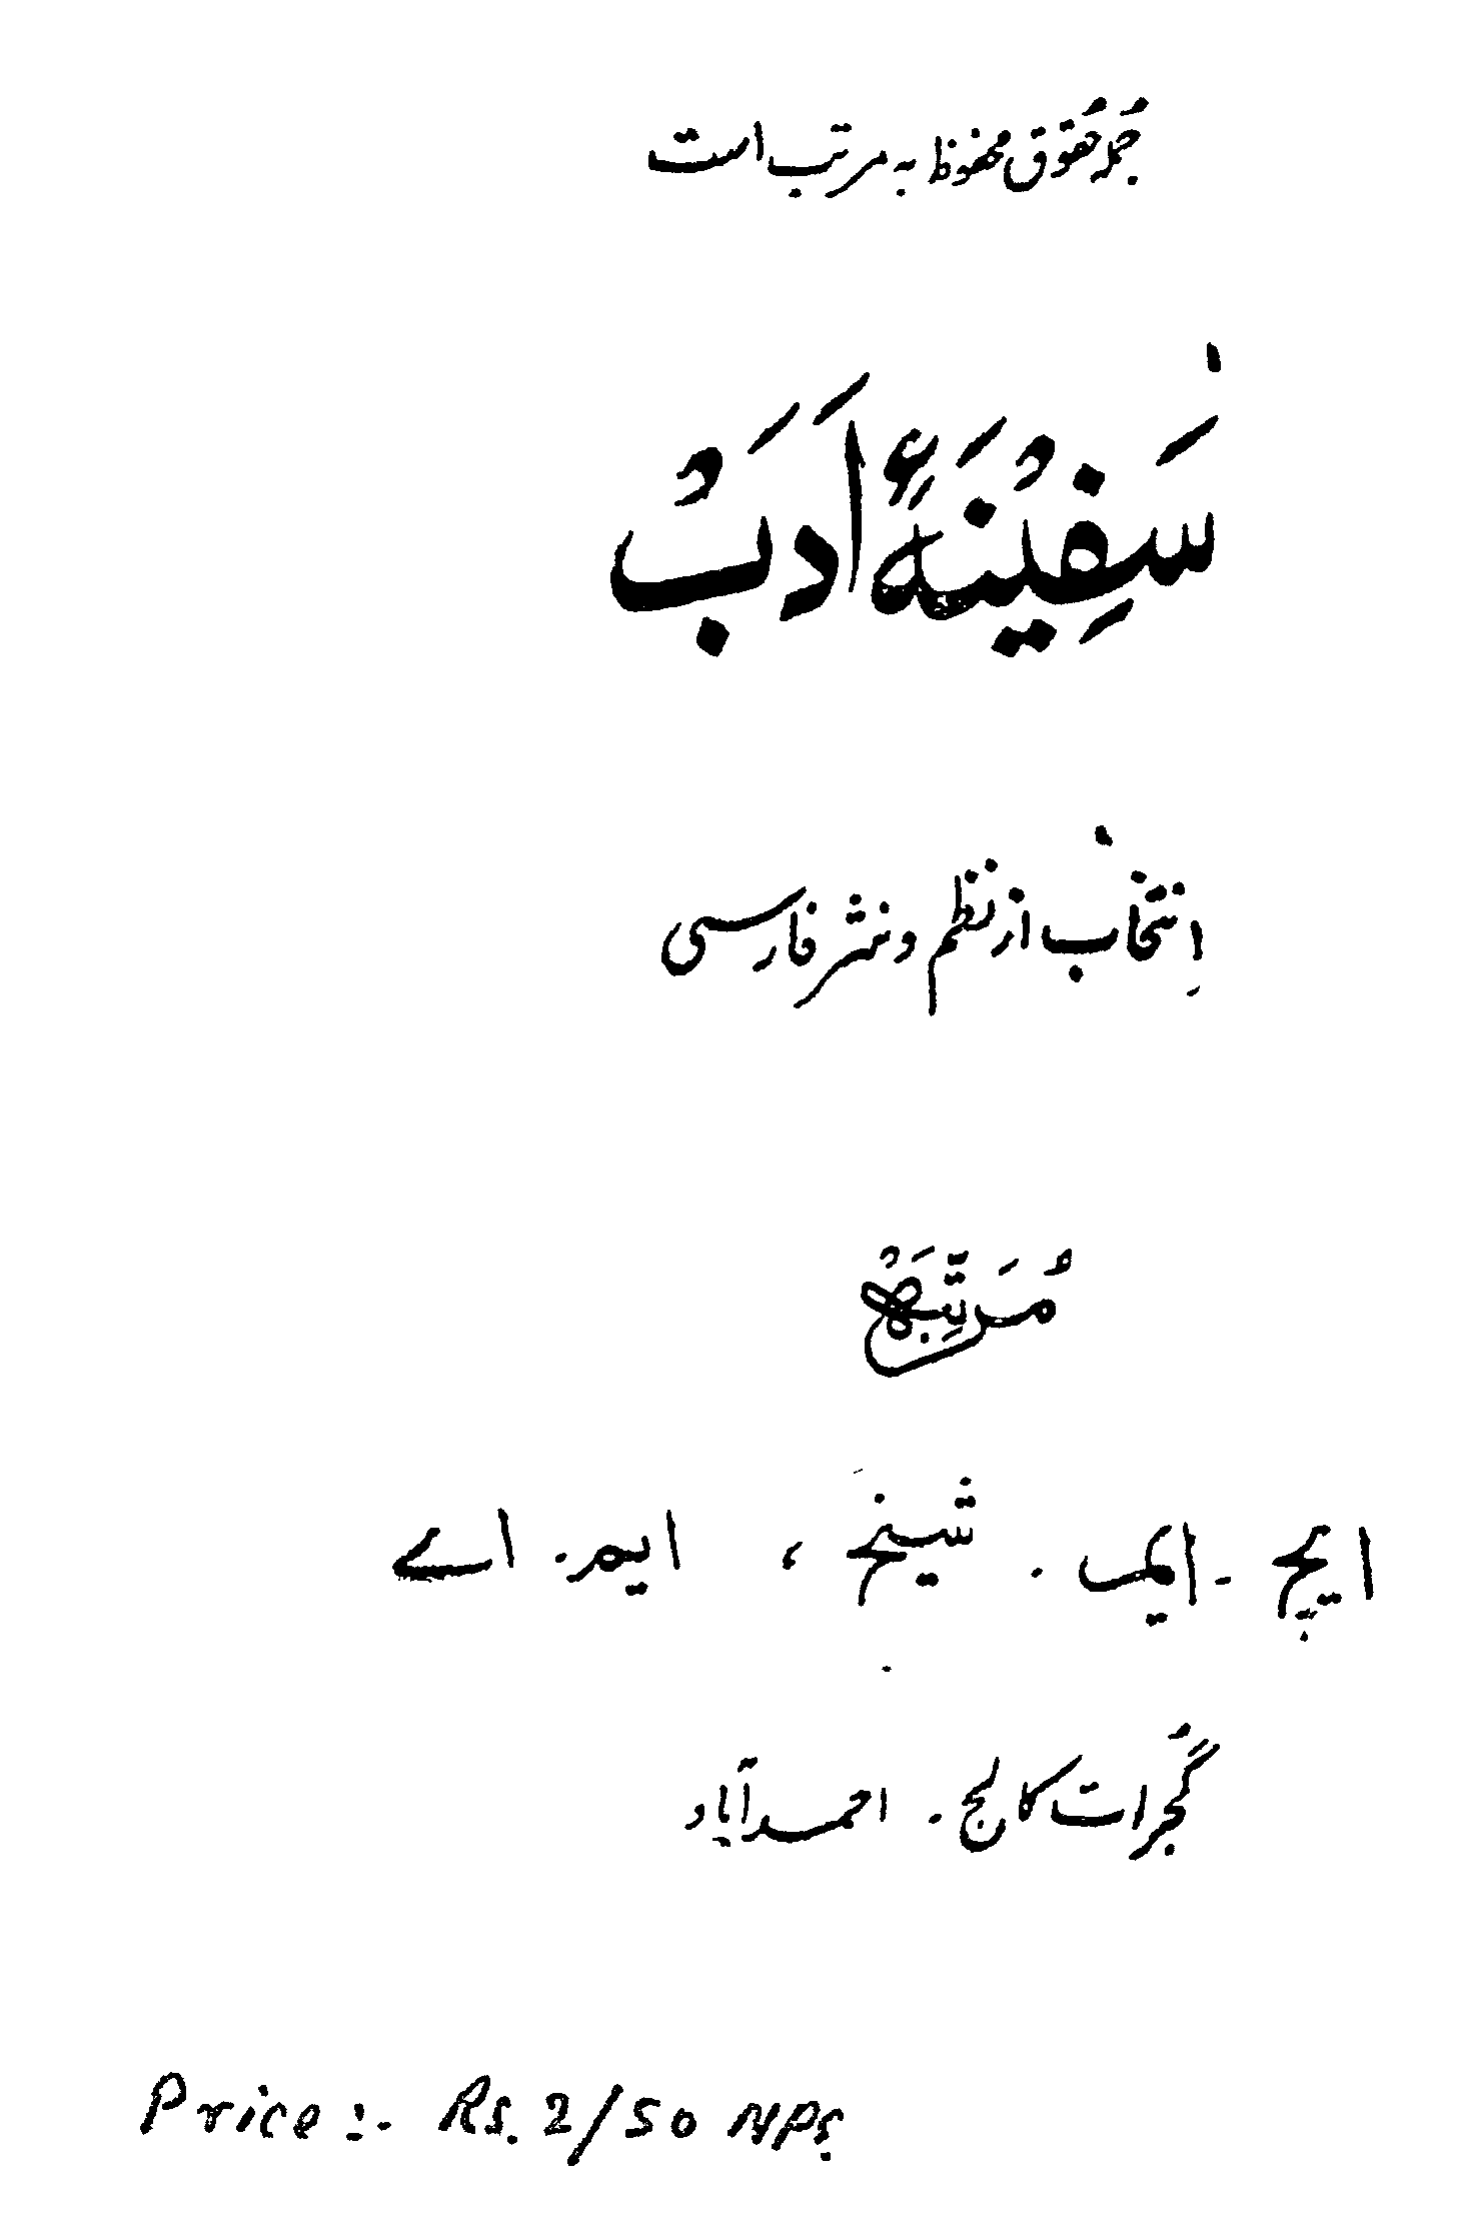 جُملہ حُقوق محفوظ بہ مرتب است
سَفِیْنَۂ اَدَبْ
اِنتخاب از نظم و نثر فارسی
مُرَتِّبَہْ
ایچ - ایم . شیخ ، ایم . اے
گُجرات کالج . احمدآباد
Price :- Rs. 2/50 NPs.